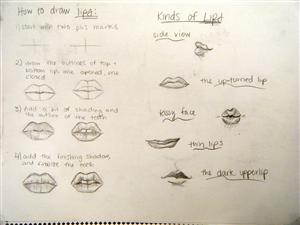 How to draw lips:
1) start with two plus marks
2) draw the outlines of top +
bottom lips one opened, one
closed
3) Add a bit of shading and
the outline of the teeth
4) add the finishing shading,
and finalize the teeth
Kinds of Lips
side view
the up-turned lip
kissy face
thin lips
the dark upperlip